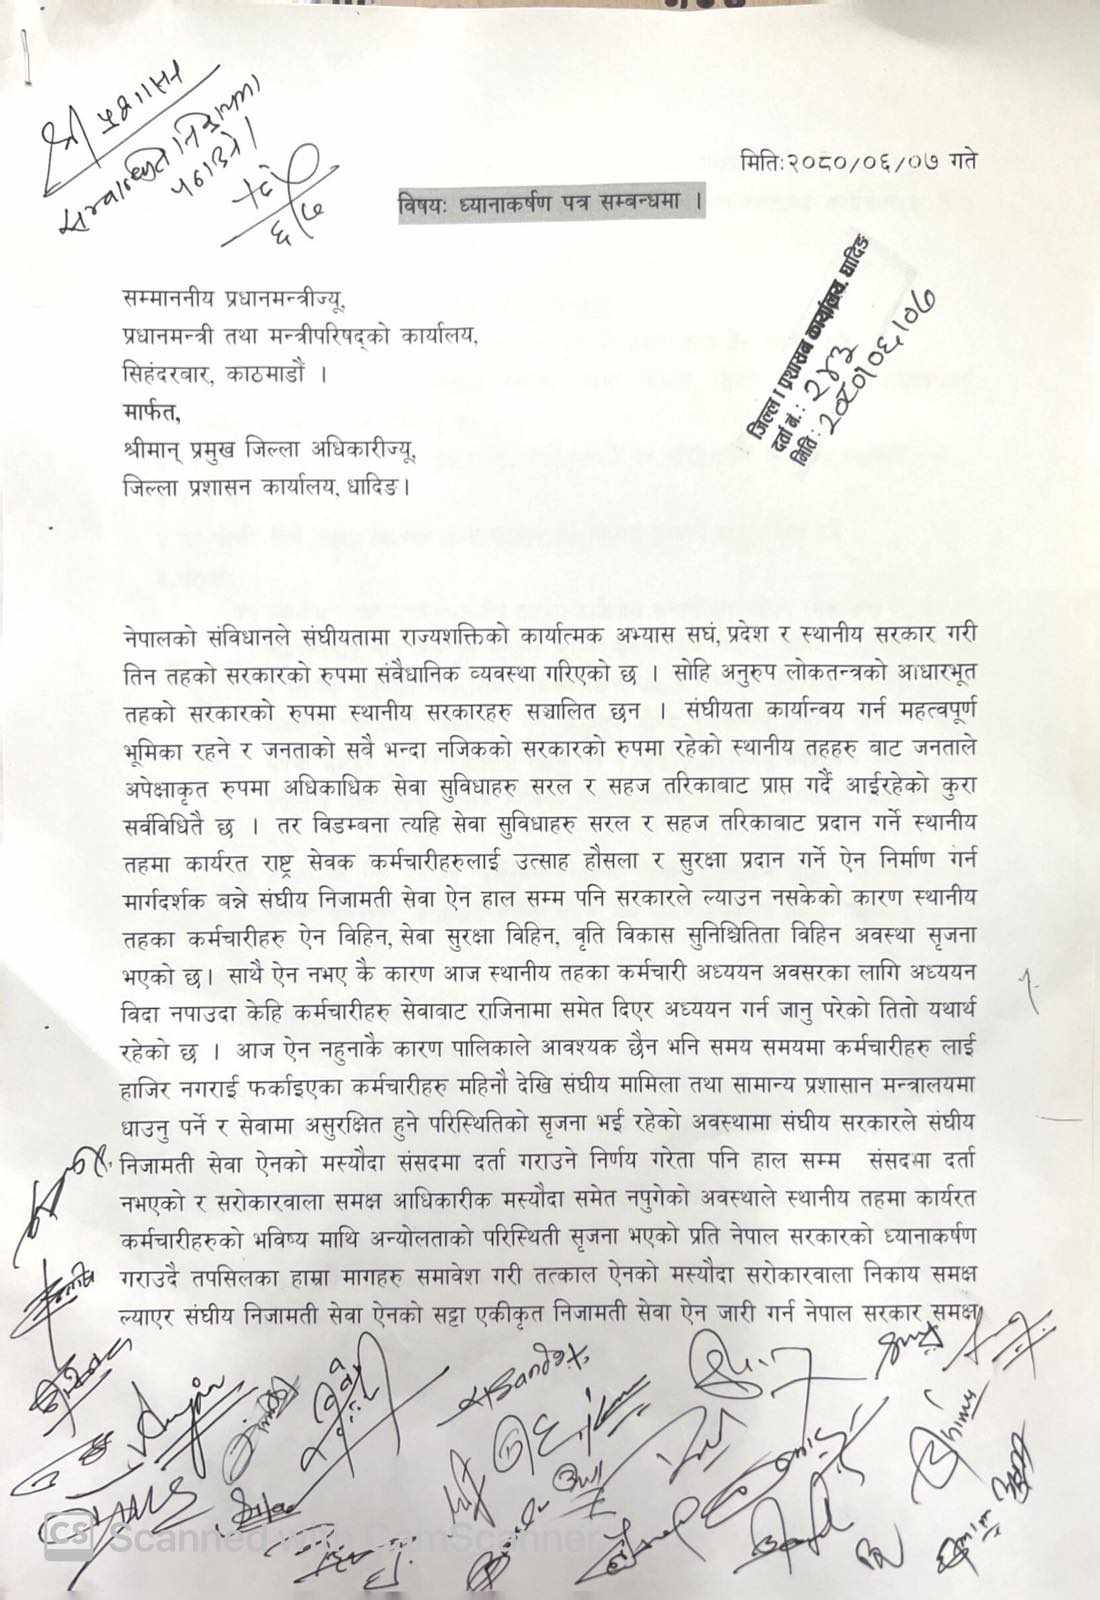 श्री प्रशासन
मिति:२०८०/०६/०७ गते
विषयः ध्यानाकर्षण पत्र सम्बन्धमा ।
जिल्ला प्रशासन कार्यालय, धादिङ
दर्ता नं.: २४३
मिति: २०८०।०६।०७
सम्माननीय प्रधानमन्त्रीज्यू,
प्रधानमन्त्री तथा मन्त्रीपरिषद्को कार्यालय,
सिहंदरबार, काठमाडौं ।
मार्फत,
श्रीमान् प्रमुख जिल्ला अधिकारीज्यू,
जिल्ला प्रशासन कार्यालय, धादिङ।
नेपालको संविधानले संघीयतामा राज्यशक्तिको कार्यात्मक अभ्यास सघं, प्रदेश र स्थानीय सरकार गरी
तिन तहको सरकारको रुपमा संवैधानिक व्यवस्था गरिएको छ । सोहि अनुरुप लोकतन्त्रको आधारभूत
तहको सरकारको रुपमा स्थानीय सरकारहरु सञ्चालित छन । संघीयता कार्यान्वय गर्न महत्वपूर्ण
भूमिका रहने र जनताको सवै भन्दा नजिकको सरकारको रुपमा रहेको स्थानीय तहहरु वाट जनताले
अपेक्षाकृत रुपमा अधिकाधिक सेवा सुविधाहरु सरल र सहज तरिकाबाट प्राप्त गर्दै आईरहेको कुरा
सर्वविधितै छ । तर विडम्बना त्यहि सेवा सुविधाहरु सरल र सहज तरिकावाट प्रदान गर्ने स्थानीय
तहमा कार्यरत राष्ट्र सेवक कर्मचारीहरुलाई उत्साह हौसला र सुरक्षा प्रदान गर्ने ऐन निर्माण गर्न
मार्गदर्शक वन्ने संघीय निजामती सेवा ऐन हाल सम्म पनि सरकारले ल्याउन नसकेको कारण स्थानीय
तहका कर्मचारीहरु ऐन विहिन, सेवा सुरक्षा विहिन, वृति विकास सुनिश्चितिता विहिन अवस्था सृजना
भएको छ। साथै ऐन नभए कै कारण आज स्थानीय तहका कर्मचारी अध्ययन अवसरका लागि अध्ययन
विदा नपाउदा केहि कर्मचारीहरु सेवावाट राजिनामा समेत दिएर अध्ययन गर्न जानु परेको तितो यथार्थ
रहेको छ । आज ऐन नहुनाकै कारण पालिकाले आवश्यक छैन भनि समय समयमा कर्मचारीहरु लाई
हाजिर नगराई फर्काइएका कर्मचारीहरु महिनौ देखि संघीय मामिला तथा सामान्य प्रशासान मन्त्रालयमा
धाउनु पर्ने र सेवामा असुरक्षित हुने परिस्थितिको सृजना भई रहेको अवस्थामा संघीय सरकारले संघीय
निजामती सेवा ऐनको मस्यौदा संसदमा दर्ता गराउने निर्णय गरेता पनि हाल सम्म संसदमा दर्ता
नभएको र सरोकारवाला समक्ष आधिकारीक मस्यौदा समेत नपुगेको अवस्थाले स्थानीय तहमा कार्यरत
कर्मचारीहरुको भविष्य माथि अन्योलताको परिस्थिती सृजना भएको प्रति नेपाल सरकारको ध्यानाकर्षण
गराउदै तपसिलका हाम्रा मागहरु समावेश गरी तत्काल ऐनको मस्यौदा सरोकारवाला निकाय समक्ष
ल्याएर संघीय निजामती सेवा ऐनको सट्टा एकीकृत निजामती सेवा ऐन जारी गर्न नेपाल सरकार समक्ष
CS Scanned with CamScanner